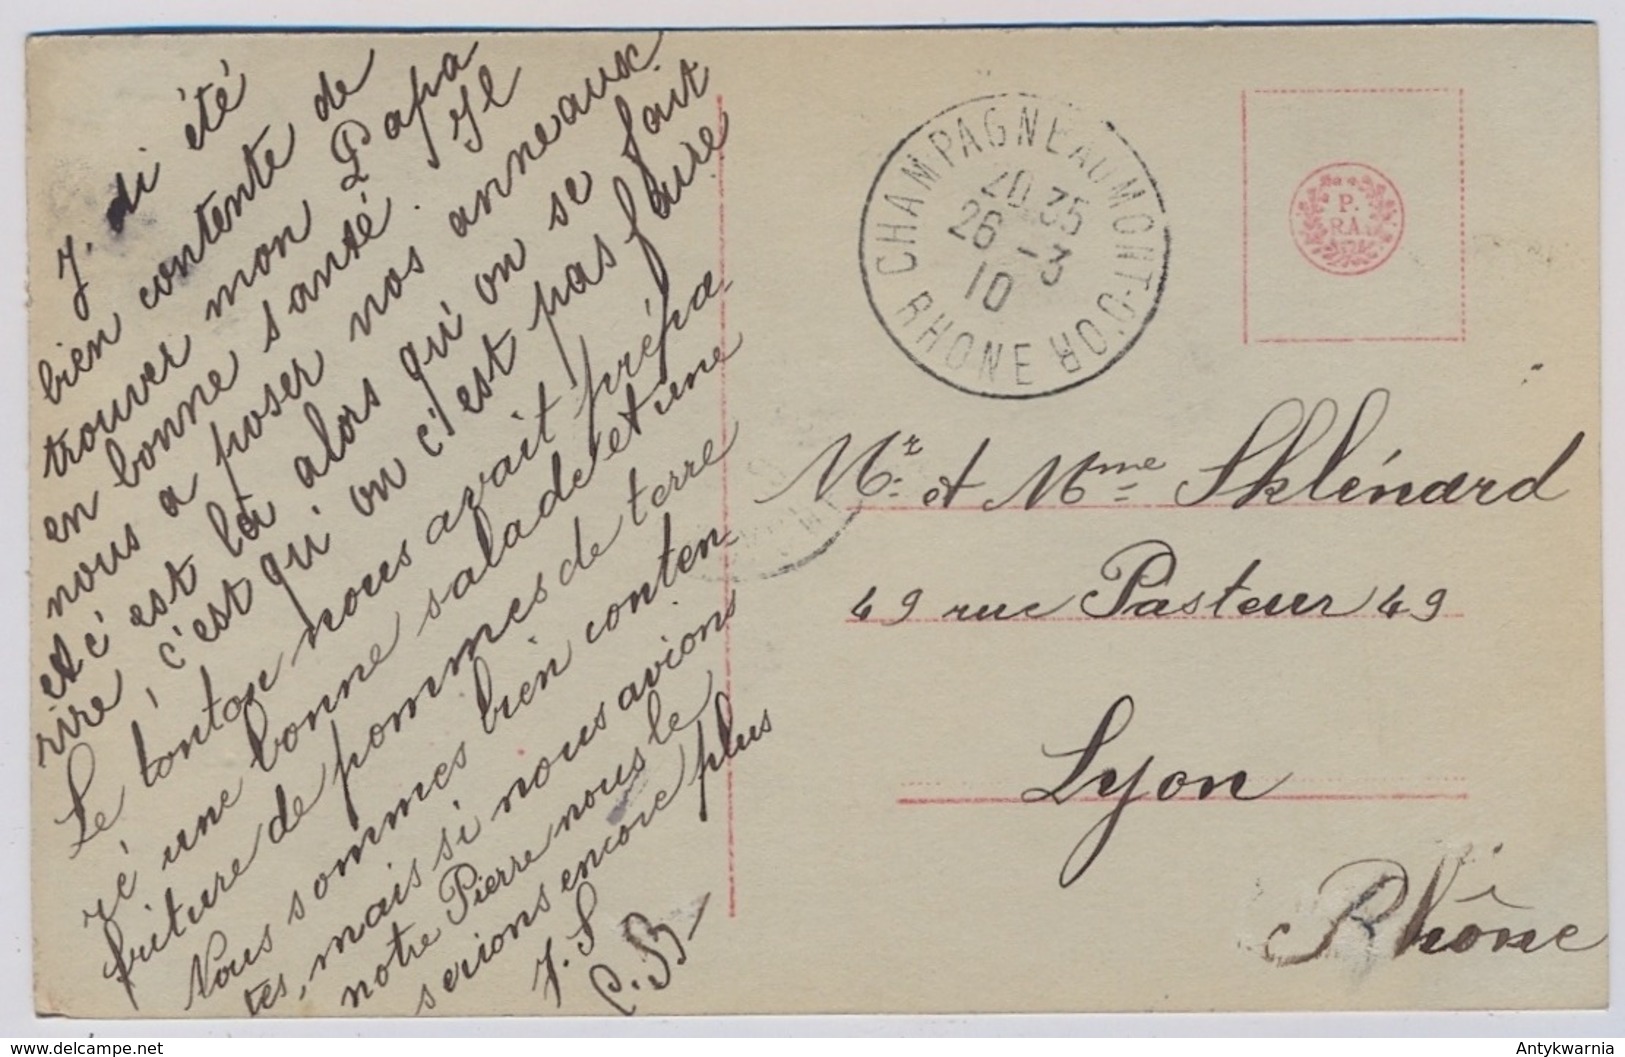 J. di été
bien contente de
trouver mon Papa
en bonne santé. Il
nous a poser nos anneaux.
et c'est là alors qu'on se
rire, c'est qui on c'est pas faire
fait
Le tonton nous avait prépa-
ré une bonne salade et une
friture de pommes de terre
Nous sommes bien conten
tes, mais si nous avions
notre Pierre nous le
serions encore plus
J. S
C. B
CHAMPAGNE AU MONT-D'OR
RHONE
20.35
26 -3
10
P.
RA.
Mr. et Mme Sklénard
49 rue Pasteur 49
Lyon
Rhône
delcampe.net
Antykwarnia